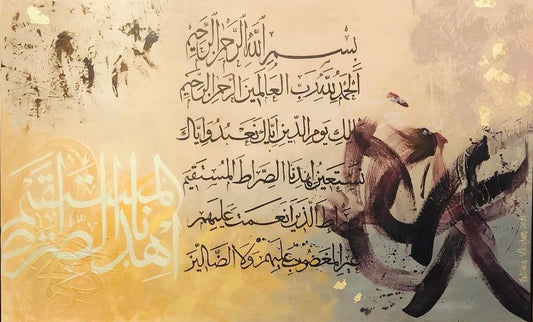 بسم الله الرحمن الرحيم
الحمد لله رب العالمين الرحمن الرحيم
ملك يوم الدين إياك نعبد وإياك
نستعين اهدنا الصراط المستقيم
صراط الذين أنعمت عليهم
غير المغضوب عليهم ولا الضالين
اهدنا الصراط المستقيم